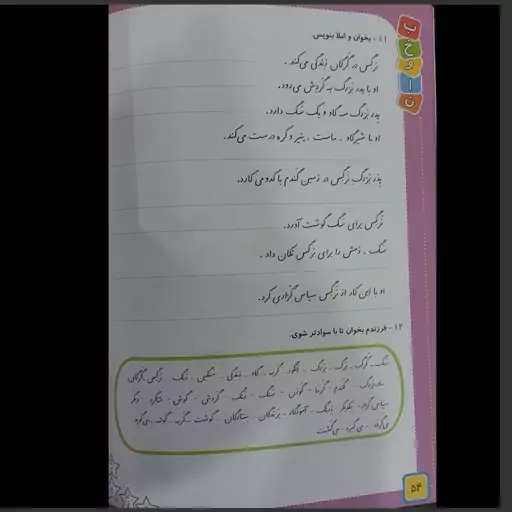 بخوان
۱۱ - بخوان و املا بنویس.
نرگس در گرگان زندگی می‌کند.
او با پدر بزرگ به گردش می‌رود.
پدر بزرگ سه گاو و یک سگ دارد.
او با شیر گاو - ماست ، پنیر و کره درست می‌کند.
پدر بزرگ نرگس در زمین گندم یا کدو می‌کارد.
نرگس برای سگ گوشت آورد.
سگ - دمش را برای نرگس تکان داد.
او با این کار از نرگس سپاس گزاری کرد.
۱۲ - فرزندم بخوان تا با سوادتر شوی.
سگ - گرگ - برگ - بزرگ - انگور - گربه - گاو - زندگی - سنگین - رنگ - نرگس - گرگان
گندم - گرما - گوزن - سنگ - تنگ - گردش - گوش - شکارگر
آموزگار - پرندگان - بستگان - گوشت - گریه
می‌گردد - می‌گیرد - می‌گشت
۵۴